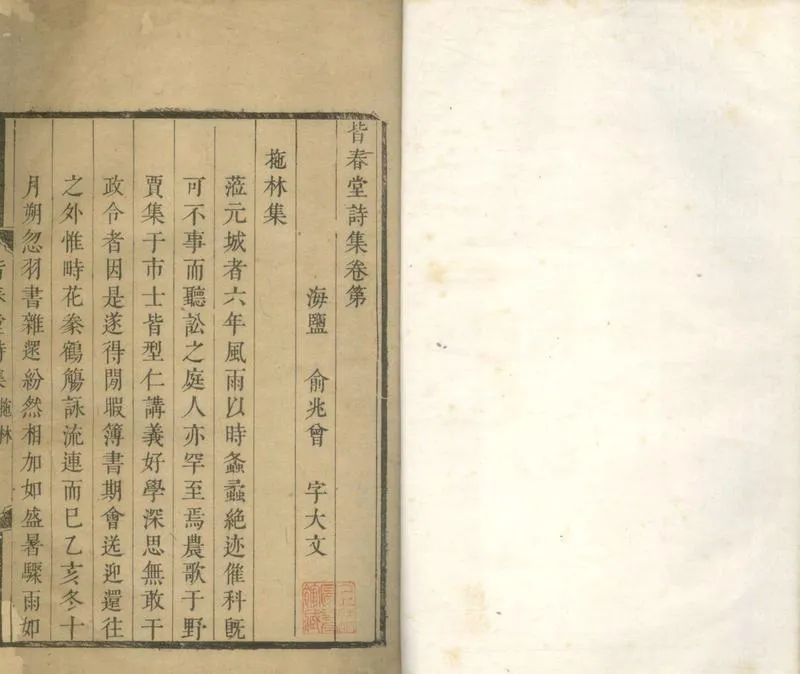 皆春堂詩集卷第
海鹽 俞兆曾 字大文
拖林集
蒞元城者六年風雨以時螽蟊絶迹催科旣
可不事而聽訟之庭人亦罕至焉農歌于野
賈集于市士皆型仁講義好學深思無敢干
政令者因是遂得閒暇簿書期會送迎還往
之外惟時花豢鶴觴詠流連而已乙亥冬十
月朔忽羽書雜遝紛然相加如盛暑驟雨如
皆春堂詩集 拖林